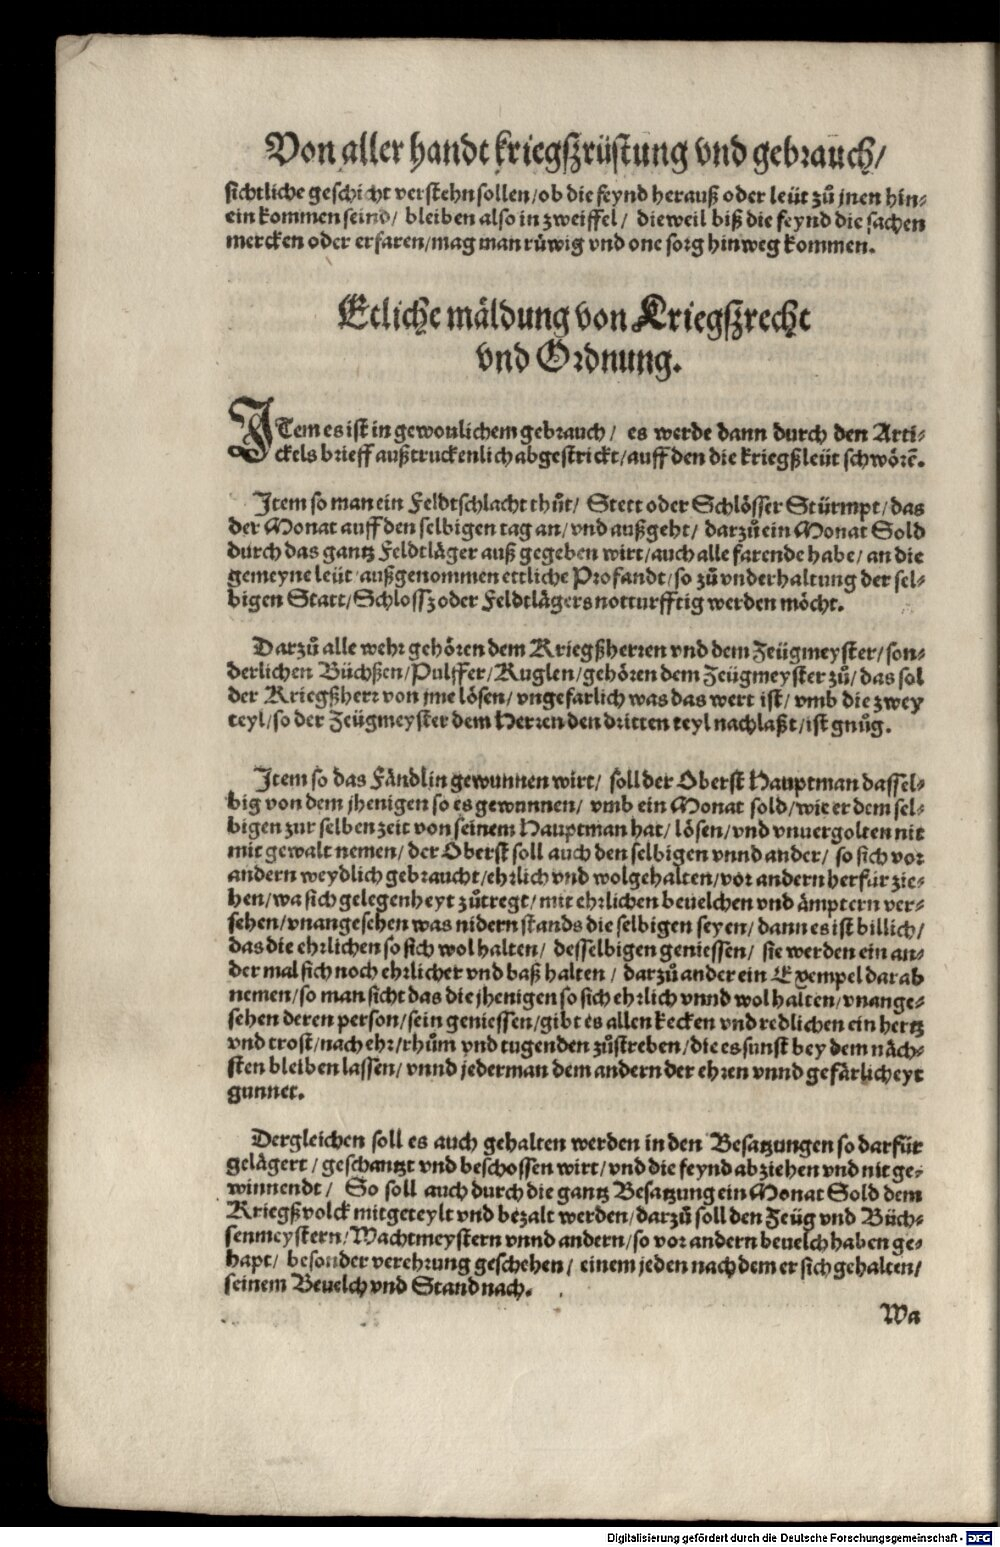 Von aller handt kriegßrüstung vnd gebrauch/
sichtliche geschicht verstehn sollen/ob die feynd herauß oder leüt zů jnen hin-
ein kommen seind/ bleiben also in zweiffel/ dieweil biß die feynd die sachen
mercken oder erfaren/mag man rüwig vnd one sorg hinweg kommen.
Etliche mäldung von Kriegßrecht
vnd Ordnung.
ITem es ist in gewonlichem gebrauch/ es werde dann durch den Arti-
ckels brieff außtruckenlich abgestrickt/auff den die kriegßleüt schwörē.
Item so man ein Feldtschlacht thůt/ Stett oder Schlösser Stürmpt/das
der Monat auff den selbigen tag an/vnd außgeht/ darzů ein Monat Sold
durch das gantz Feldtläger auß gegeben wirt/auch alle farende habe/an die
gemeyne leüt/außgenommen ettliche Profandt/so zů vnderhaltung der sel-
bigen Statt/Schlossz oder Feldtlägers notturfftig werden möcht.
Darzů alle wehr gehören dem Kriegßherren vnd dem Zeügmeyster/son-
derlichen Büchßen/Pulffer/Kuglen/gehören dem Zeügmeyster zů/das sol
der Kriegßherr von jme lösen/vngefarlich was das wert ist/vmb die zwey
teyl/so der Zeügmeyster dem Herren den dritten teyl nachlaßt/ist gnůg.
Item so das Fändlin gewunnen wirt/ soll der Oberst Hauptman dassel-
big von dem jhenigen so es gewunnen/ vmb ein Monat sold/wie er dem sel-
bigen zur selben zeit von seinem Hauptman hat/ lösen/vnd vnuergolten nit
mit gewalt nemen/der Oberst soll auch den selbigen vnnd ander/ so sich vor
andern weydlich gebraucht/ehrlich vnd wolgehalten/vor andern herfür zie-
hen/wa sich gelegenheyt zůtregt/mit ehrlichen beuelchen vnd ämptern ver-
sehen/vnangesehen was nidern stands die selbigen seyen/dann es ist billich/
das die ehrlichen so sich wol halten/ desselbigen geniessen/ sie werden ein an-
der mal sich noch ehrlicher vnd baß halten/ darzů ander ein Exempel darab
nemen/so man sicht das die jhenigen so sich ehrlich vnnd wol halten/vnange-
sehen deren person/sein geniessen/gibt es allen kecken vnd redlichen ein hertz
vnd trost/nach ehr/rhům vnd tugenden zůstreben/die es sunst bey dem näch-
sten bleiben lassen/vnnd jederman dem andern der ehren vnnd gefärlicheyt
gunnet.
Dergleichen soll es auch gehalten werden in den Besatzungen so darfür
gelägert/geschantzt vnd beschossen wirt/vnd die feynd abziehen vnd nit ge-
winnendt/ So soll auch durch die gantz Besatzung ein Monat Sold dem
Kriegßvolck mitgeteylt vnd bezalt werden/darzů soll den Zeüg vnd Büch-
senmeystern/Wachtmeystern vnnd andern/so vor andern beuelch haben ge-
hapt/ besonder verehrung geschehen/ einem jeden nach dem er sich gehalten/
seinem Beuelch vnd Stand nach.
Wa
Digitalisierung gefördert durch die Deutsche Forschungsgemeinschaft - DFG